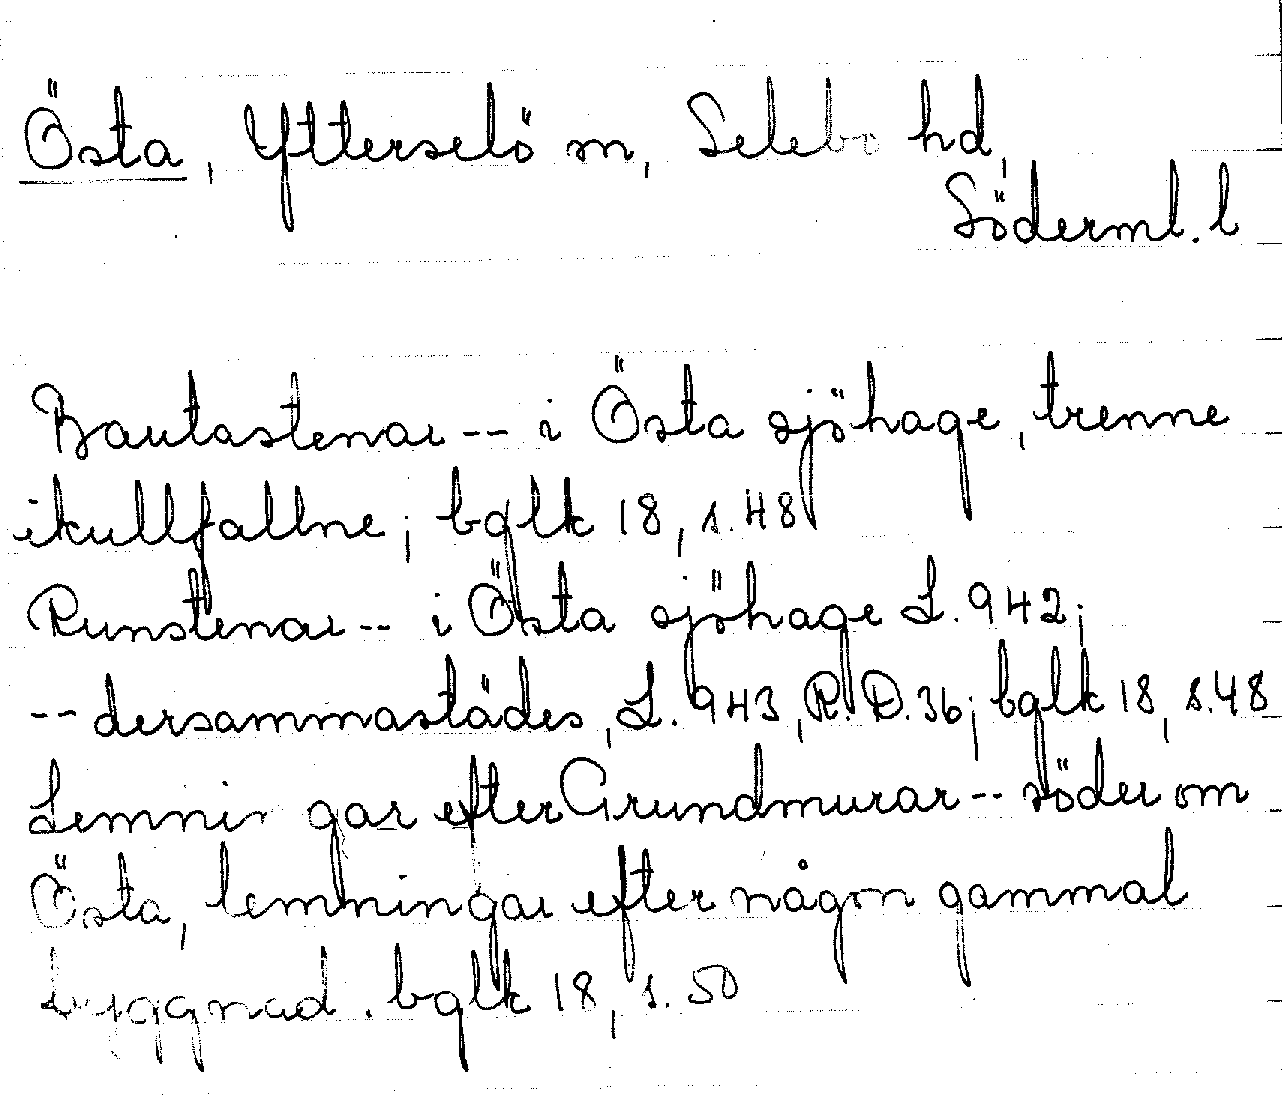 Östa, Ytterselö sn, Selebo hd,
Söderml. l
Bautastenar -- i Östa sjöhage, trenne
ikullfallne; bglk 18, s. 48
Runstenar -- i Östa sjöhage L. 942;
-- dersammastädes, L. 943, R. D. 36; bglk 18, s. 48
Lemnin gar efter Grundmurar -- söder om
Östa, lemningar efter någon gammal
byggnad. bglk 18, s. 50